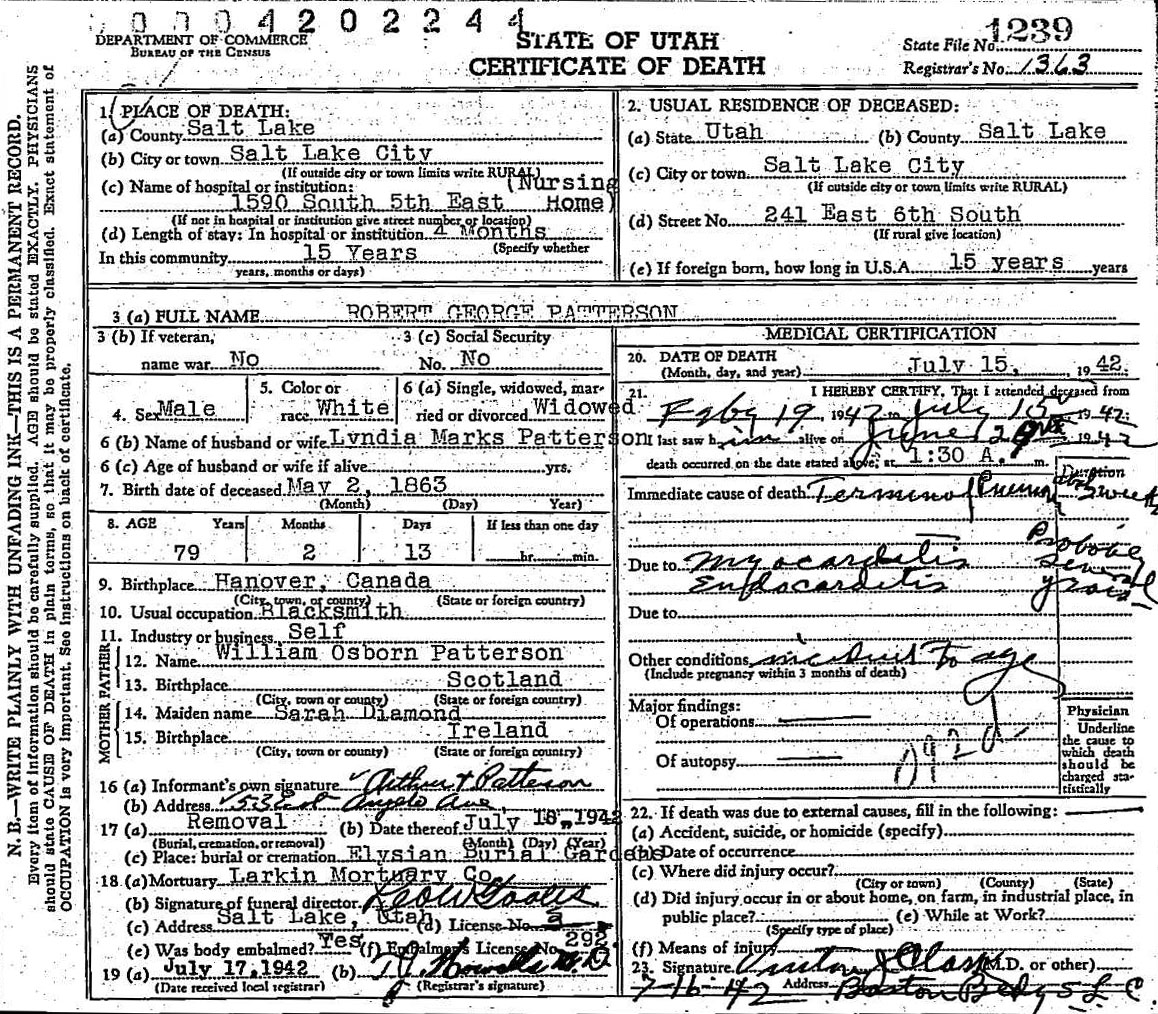 0004202244
DEPARTMENT OF COMMERCE
BUREAU OF THE CENSUS
STATE OF UTAH
CERTIFICATE OF DEATH
State File No. 1239
Registrar's No. 1363
N. B.—WRITE PLAINLY WITH UNFADING INK—THIS IS A PERMANENT RECORD.
Every item of information should be carefully supplied. AGE should be stated EXACTLY. PHYSICIANS
should state CAUSE OF DEATH in plain terms, so that it may be properly classified. Exact statement of
OCCUPATION is very important. See instructions on back of certificate.
1. PLACE OF DEATH:
(a) County Salt Lake
(b) City or town Salt Lake City
(If outside city or town limits write RURAL)
(c) Name of hospital or institution: (Nursing
1590 South 5th East Home)
(If not in hospital or institution give street number or location)
(d) Length of stay: In hospital or institution 4 Months
(Specify whether
In this community 15 Years
years, months or days)
2. USUAL RESIDENCE OF DECEASED:
(a) State Utah (b) County Salt Lake
(c) City or town Salt Lake City
(If outside city or town limits write RURAL)
(d) Street No. 241 East 6th South
(If rural give location)
(e) If foreign born, how long in U.S.A. 15 years years
3 (a) FULL NAME ROBERT GEORGE PATTERSON
3 (b) If veteran, 3 (c) Social Security
name war No No. No
4. Sex Male
5. Color or
race White
6 (a) Single, widowed, mar-
ried or divorced Widowed
6 (b) Name of husband or wife Lyndia Marks Patterson
6 (c) Age of husband or wife if alive yrs.
7. Birth date of deceased May 2, 1863
(Month) (Day) Year)
8. AGE Years Months Days If less than one day
79 2 13 hr. min.
9. Birthplace Hanover, Canada
(City, town, or county) (State or foreign country)
10. Usual occupation Blacksmith
11. Industry or business Self
FATHER
12. Name William Osborn Patterson
13. Birthplace Scotland
(City, town or county) (State or foreign country)
MOTHER
14. Maiden name Sarah Diamond
15. Birthplace Ireland
(City, town or county) (State or foreign country)
16 (a) Informant's own signature Arthur Patterson
(b) Address Angelo Ave
17 (a) Removal (b) Date thereof July 18, 1942
(Burial, cremation, or removal) (Month) (Day) (Year)
(c) Place: burial or cremation Elysian Burial Gardens
18 (a) Mortuary Larkin Mortuary Co
(b) Signature of funeral director
(c) Address Salt Lake, Utah (d) License No. 2
(e) Was body embalmed? Yes (f) Embalmer's License No. 292
19 (a) July 17, 1942 (b) T.J. Howells M.D
(Date received local registrar) (Registrar's signature)
MEDICAL CERTIFICATION
20. DATE OF DEATH
(Month, day, and year) July 15, 1942.
21. I HEREBY CERTIFY, That I attended deceased from
Feby 19, 1942 to July 15 1942;
I last saw him alive on June 1942
death occurred on the date stated above, at 1:30 A. m.
Duration
Immediate cause of death Terminal Pneumonia 2 weeks
Due to Myocarditis Probably
Endocarditis Several years
Due to
Other conditions incident to age
(Include pregnancy within 3 months of death)
Major findings:
Of operations
Of autopsy
Physician
Underline
the cause to
which death
should be
charged sta-
tistically
22. If death was due to external causes, fill in the following:
(a) Accident, suicide, or homicide (specify)
(b) Date of occurrence
(c) Where did injury occur?
(City or town) (County) (State)
(d) Did injury occur in or about home, on farm, in industrial place, in
public place? (e) While at Work?
(Specify type of place)
(f) Means of injury
23. Signature (M.D. or other)
7-16-42 Address Boston Bldg S L C